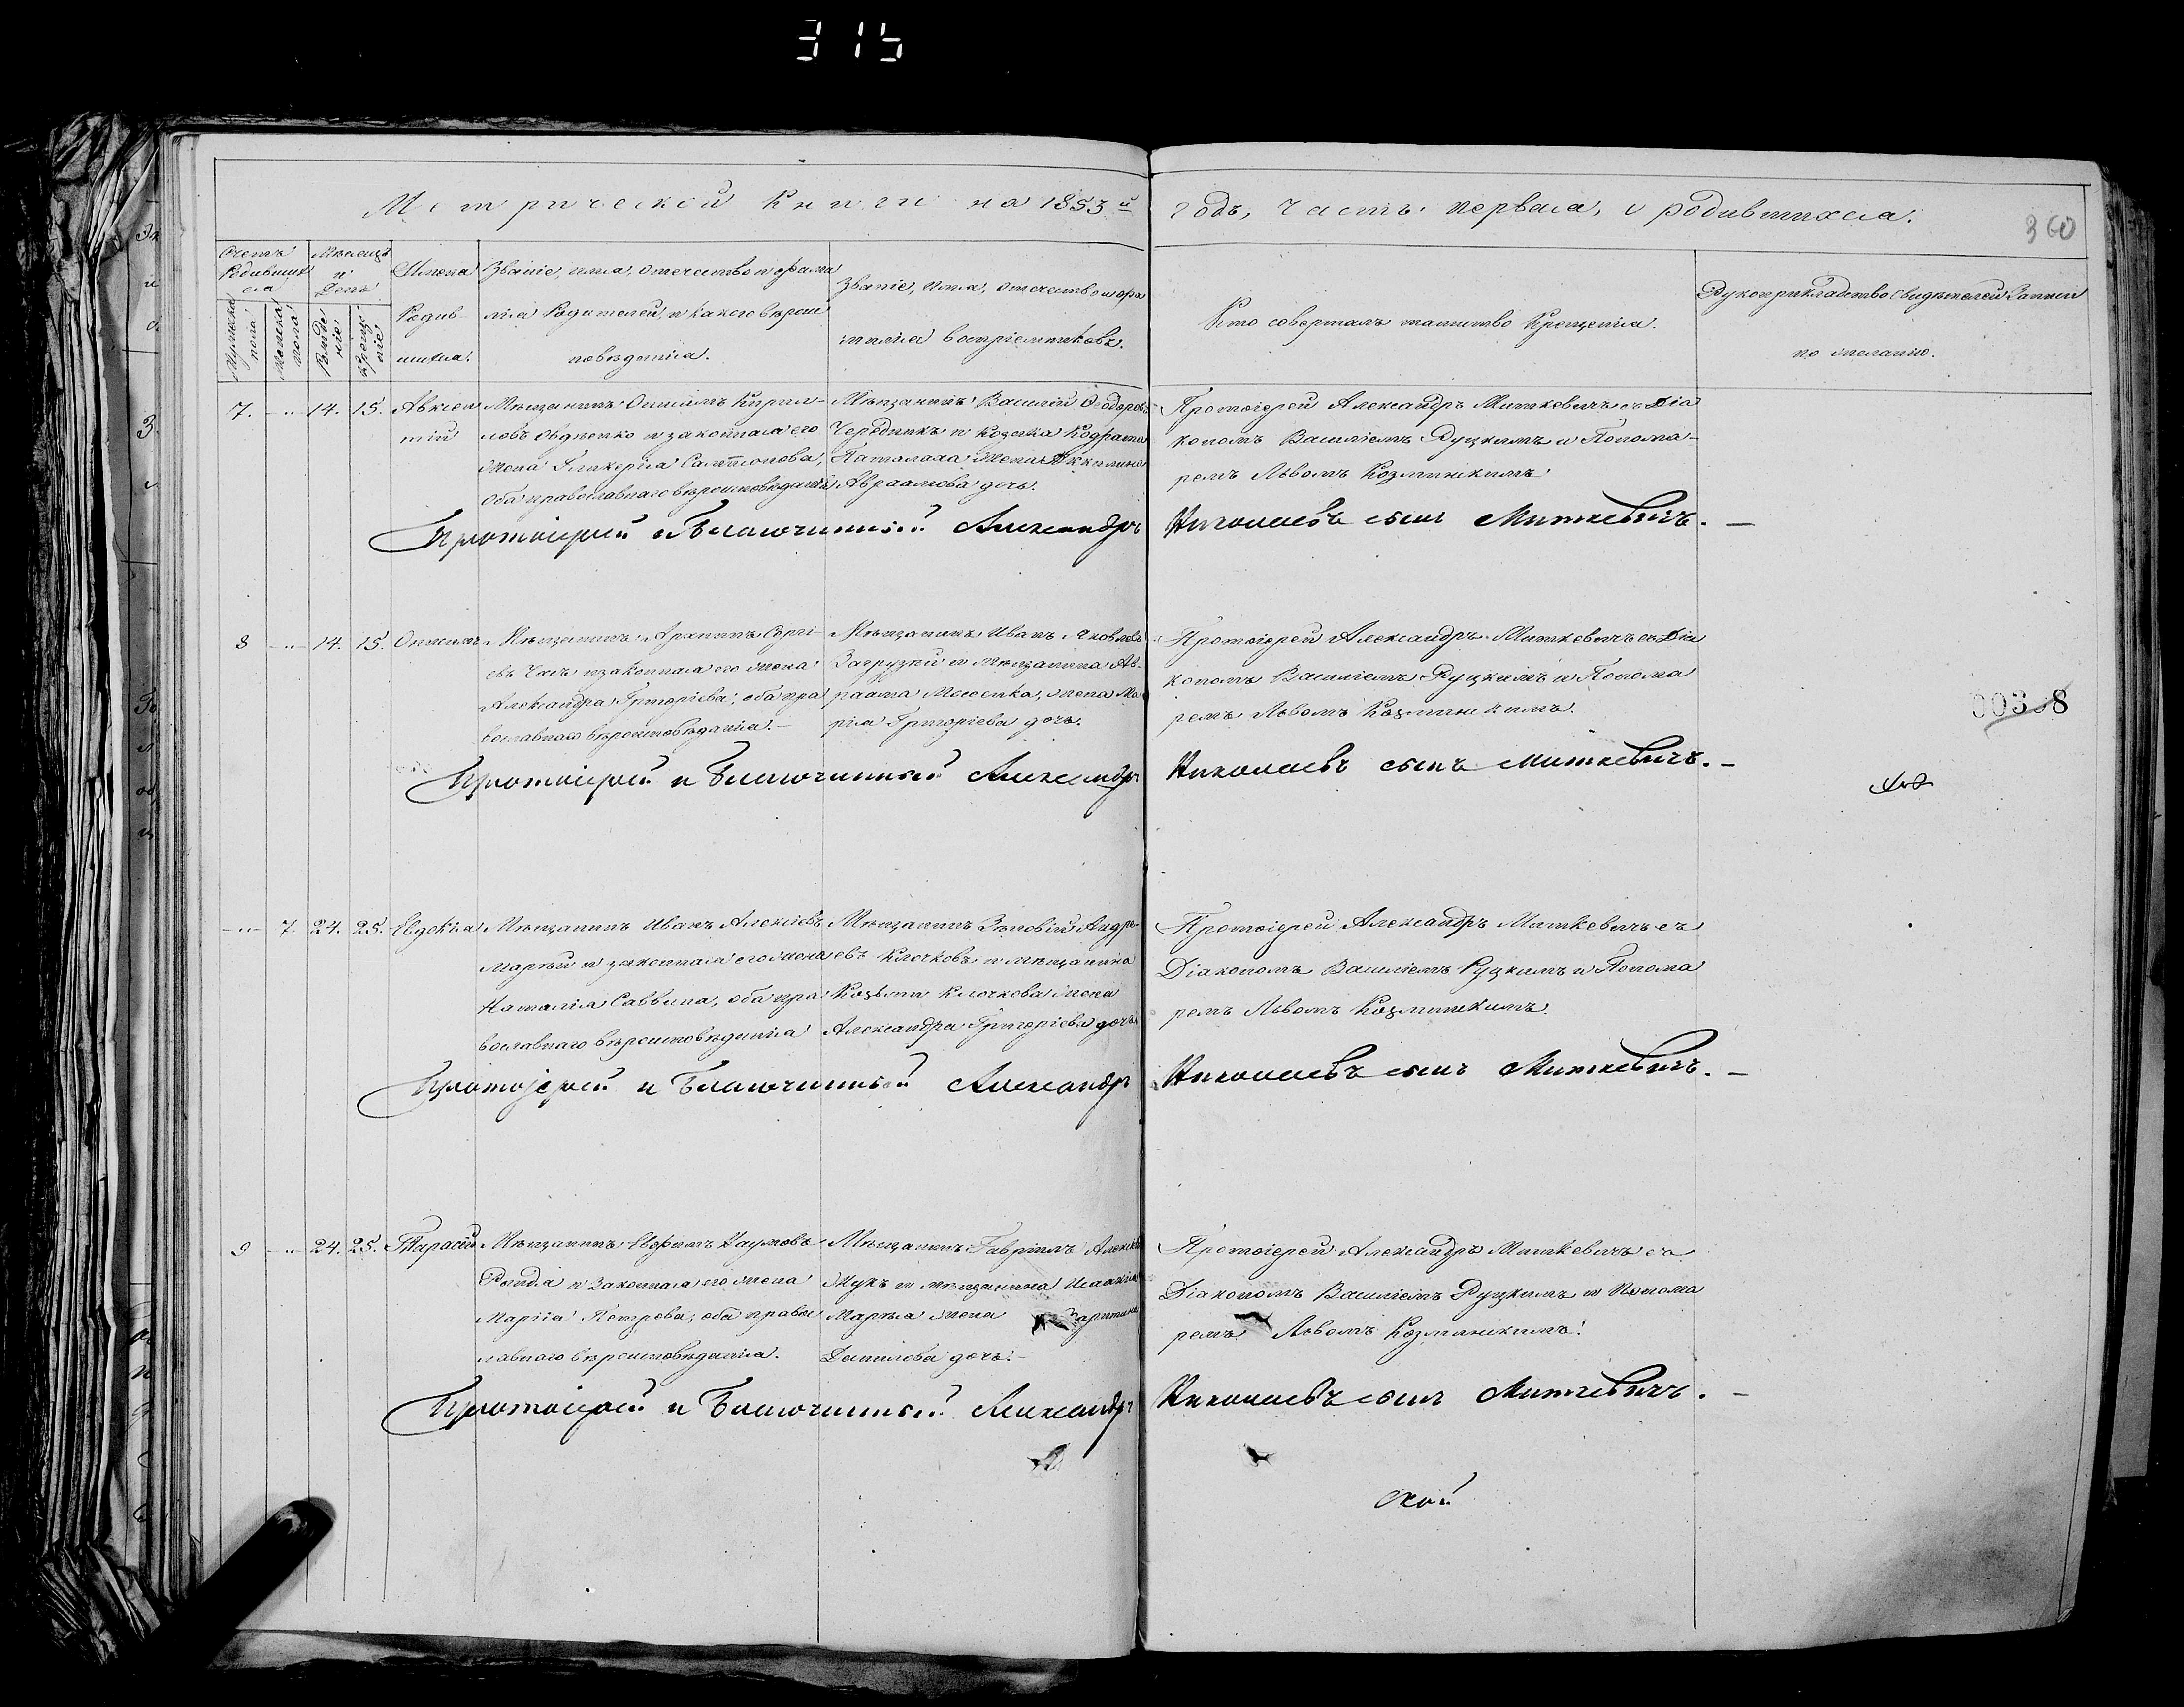 315
Метрической книги на 1853й годъ, часть первая, о родившихся.
360
Счетъ родившихся
Мѣсяцъ и День
Имена родившихся.
Званіе, имя, отечество и фамилія Родителей, и какого вѣроисповѣданія.
Званіе, имя, отечество и фамилія воспріемниковъ.
Кто совершалъ таинство Крещенія.
Рукоприкладство свидѣтелей записи по желанію.
Мужеска пола
Женска пола
Рожденіе
Крещеніе
7. - „ - 14. 15. Авксен
тій
Мѣщанинъ Онисимъ Кирил-
ловъ Овдѣенко и законная его
жена Гликерія Сампсонова,
оба православнаго вѣроисповѣданія
Мѣщанинъ Василій Ѳеодоровъ
Чередникъ и козака Кодрата
Паталаха жена Акилина
Авраамова дочь.
Протоіерей Александръ Миткевичъ съ Діа
кономъ Василіемъ Руцкимъ и Понома-
ремъ Львомъ Козминскимъ.
Протоіерей и Благочинный Александръ Николаевъ сынъ Миткевичъ. —
8 - „ - 14. 15. Онисимъ
Мѣщанинъ Архипъ Сергі-
евъ Часъ и законная его жена
Александра Григоріева, оба пра
вославнаго вѣроисповѣданія. —
Мѣщанинъ Иванъ Яковлевъ
Загрузкій и Мѣщанина Ав-
раама Мосенка, жена Ма
рія Григоріева дочь.
Протоіерей Александръ Миткевичъ съ Діа
кономъ Василіемъ Руцкимъ и Понома
ремъ Львомъ Козминскимъ.
Протоіерей и Благочинный Александръ Николаевъ сынъ Миткевичъ. —
- „ - 7. 24. 25. Евдокія
Мѣщанинъ Иванъ Алексіевъ
Марѣй и законная его жена
Наталія Саввина, оба пра
вославнаго вѣроисповѣданія
Мѣщанинъ Зѣновій Андре
евъ Клочковъ и мѣщанина
Козьмы Клочкова жена
Александра Григоріева дочь
Протоіерей Александръ Миткевичъ съ
Діакономъ Василіемъ Руцкимъ и Понома
ремъ Львомъ Козминскимъ.
Протоіерей и Благочинный Александръ Николаевъ сынъ Миткевичъ. —
9 - „ - 24. 25. Тарасій
Мѣщанинъ Евфимъ Наумовъ
и законная его жена
Марія Петрова, оба правос
лавнаго вѣроисповѣданія.
Мѣщанинъ Гавріилъ
Жукъ и мѣщанина
жена
Данилова дочь. —
Протоіерей Александръ Миткевичъ съ
Діакономъ Василіемъ Руцкимъ и Понома
ремъ Львомъ Козминскимъ.
Протоіерей и Благочинный Александръ Николаевъ сынъ Миткевичъ. —
ской